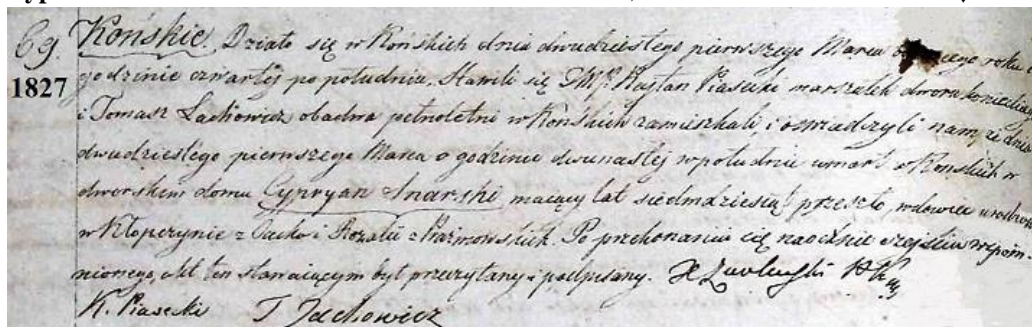 69. Końskie. Działo się w Końskich dnia dwudziestego pierwszego Marca roku o
1827 godzinie czwartej po południu. Stawili się Kajtan Piasecki marszałek dworu
i Tomasz Lachowicz obadwa pełnoletni w Końskich zamieszkali i oświadczyli nam, że dnia
dwudziestego pierwszego Marca o godzinie dwunastej w południe umarł w Końskich w
dworskim domu Cypryan Snarski maiący lat siedmdziesiąt przeszło, wdowiec urodzon
w z Jacka i Rozalii z Prażmowskich. Po przekonaniu się naocznie o zejściu wspom-
nionego, akt ten stawaiącym był przeczytany i podpisany.
K. Piasecki T Lachowicz